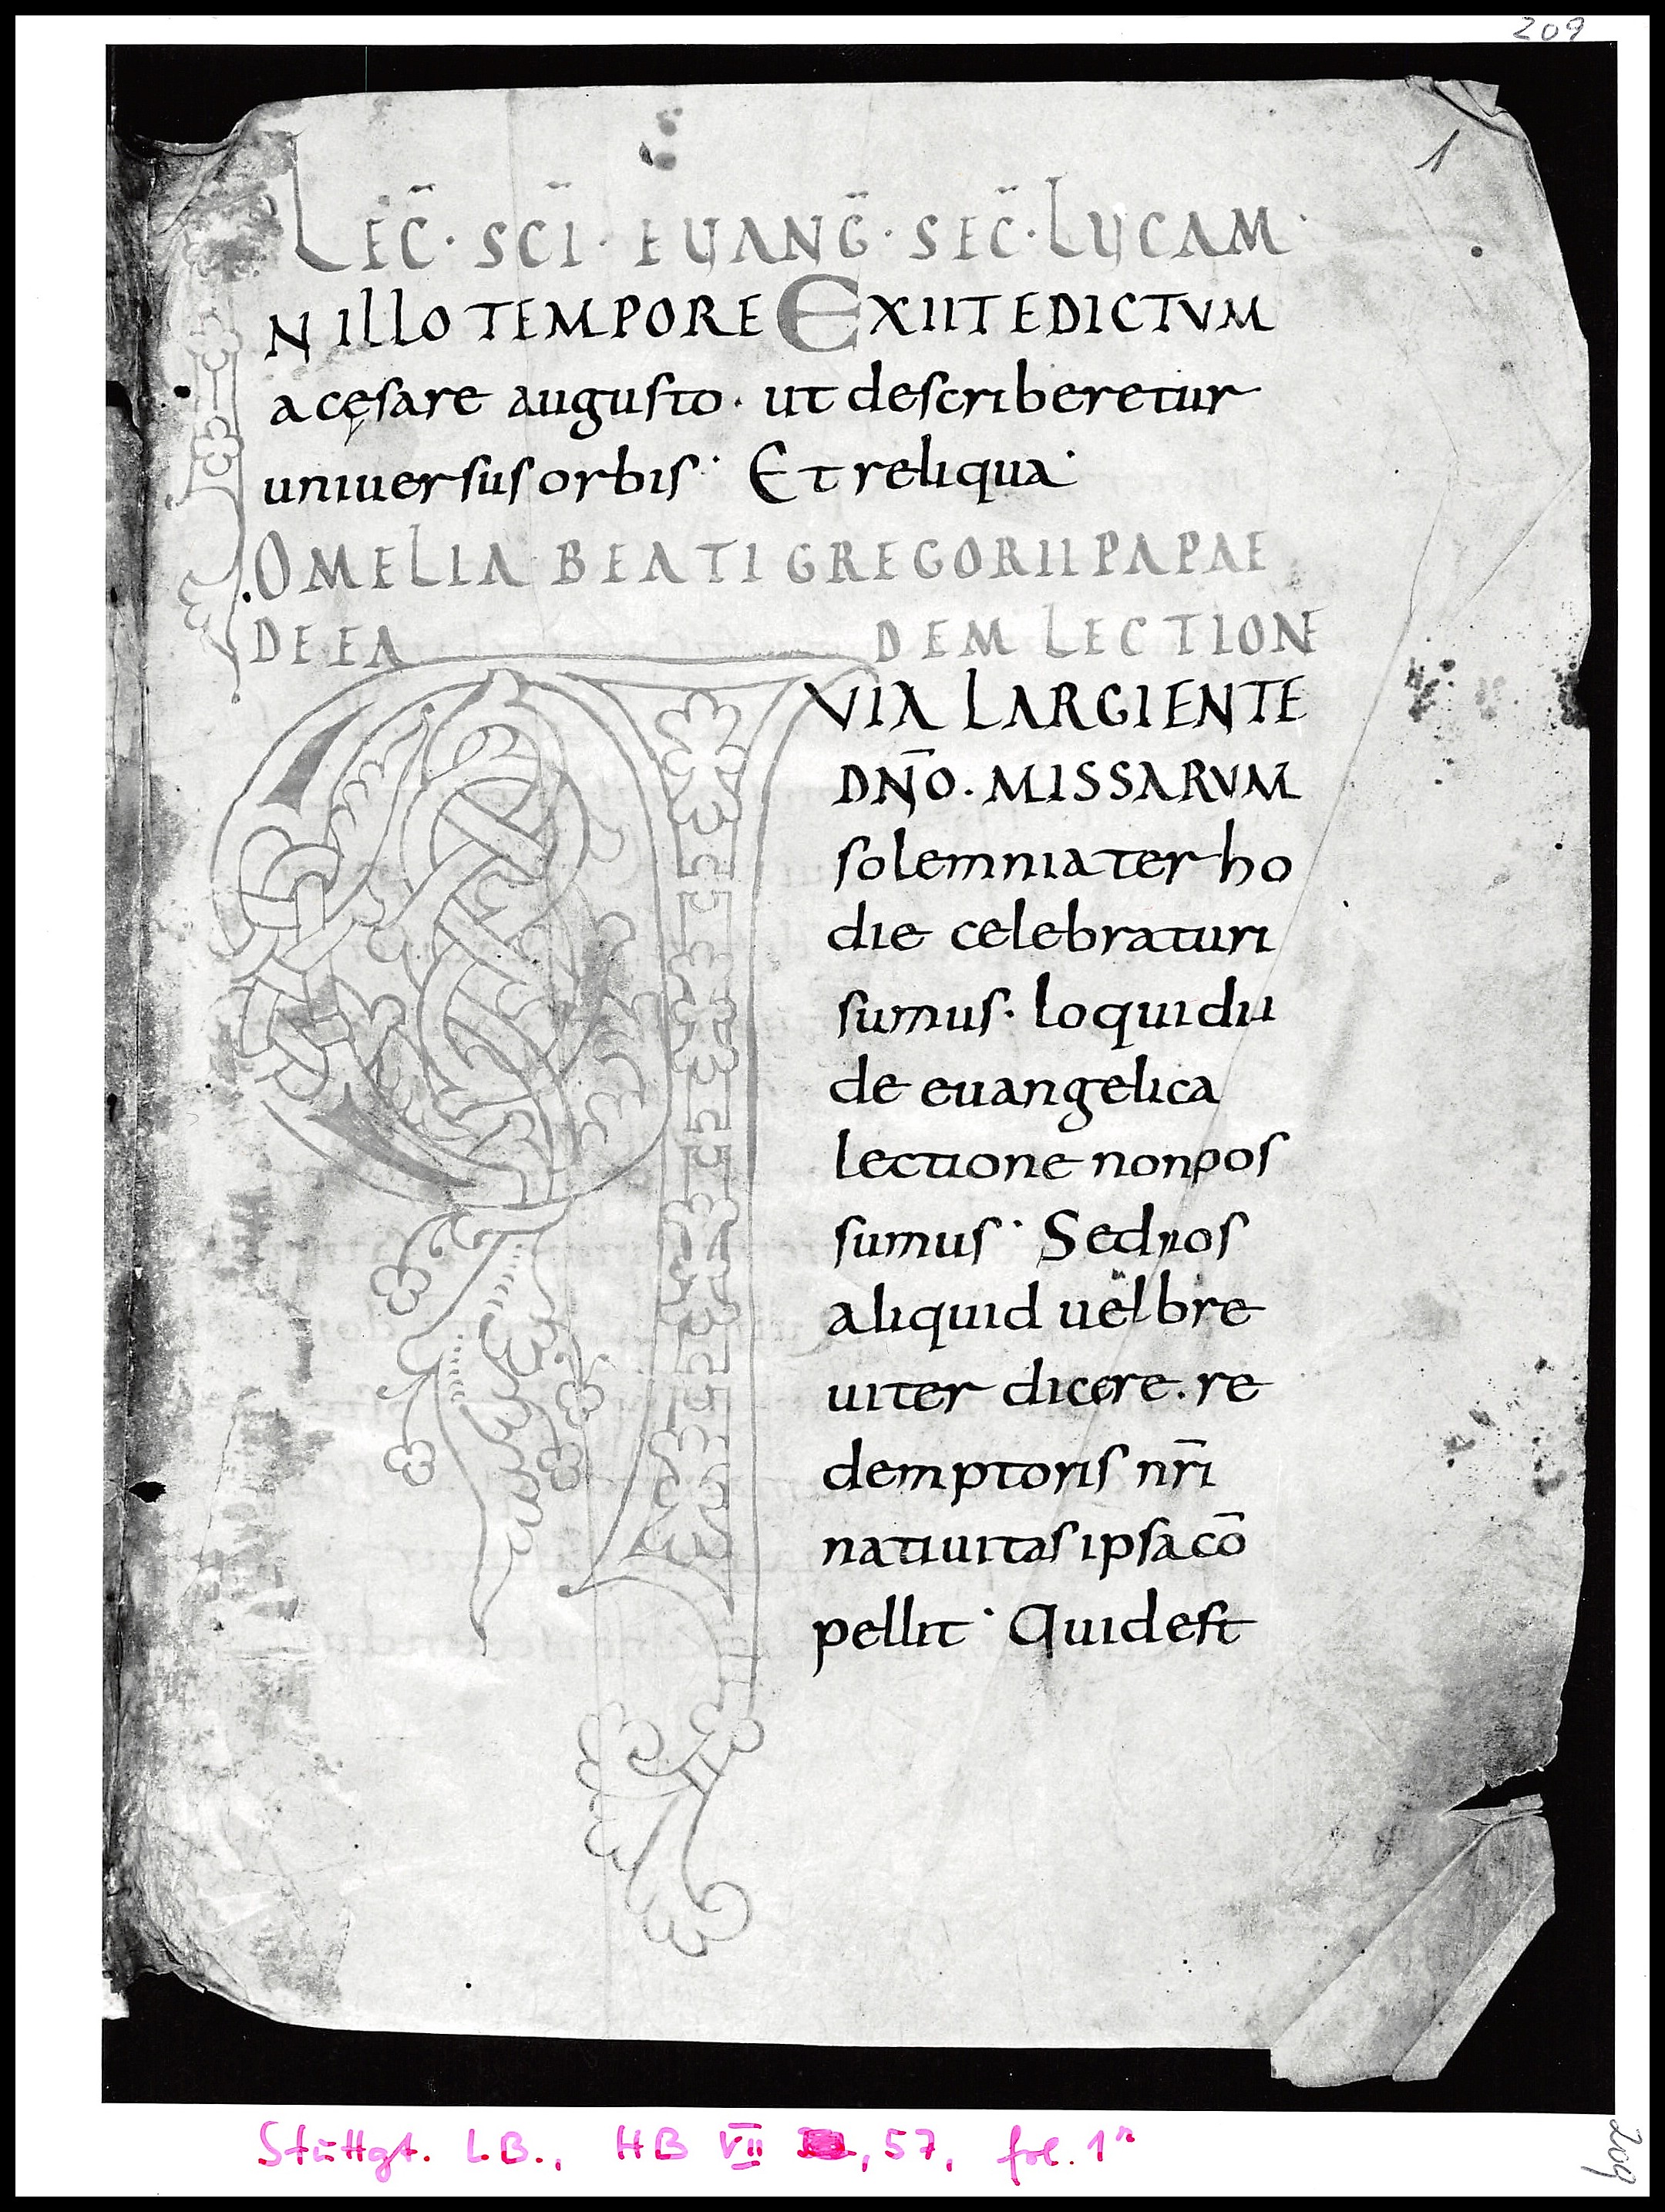 209
1
LEC̄ · SC̄I · EUANḠ · SEC̄ · LUCAM ·
IN ILLO TEMPORE EXIIT EDICTUM
a cęsare augusto · ut describeretur
universus orbis · Et reliqua ·
OMELIA BEATI GREGORII PAPAE
DE EA DEM LECTION
QUIA LARGIENTE
DN̄O. MISSARUM
solemnia ter ho
die celebraturi
sumus · loqui diu
de euangelica
lectione non pos
sumus · Sed nos
aliquid uel bre
uiter dicere. re
demptoris nr̄i
natiuitas ipsa cō
pellit · Quid est
Stuttgt. LB., HB VII, 57, fol. 1r
209